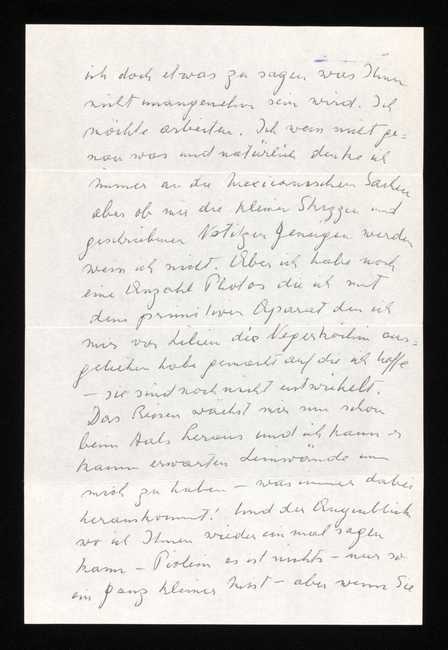 ich doch etwas zu sagen was Ihnen
nicht unangenehm sein wird. Ich
möchte arbeiten. Ich weis nicht ge=
nau was und natürlich denke ich
immer an die Mexicanischen Sachen
aber ob mir die kleinen Skizzen und
geschriebenen Notizen genügen werden
weis ich nicht. Aber ich habe noch
eine Anzahl Photos die ich mit
dem primitiven Aparat den ich
mir von der Negerköchin aus=
geliehen habe gemacht auf die ich hoffe
– sie sind noch nicht entwickelt.
Das Reisen wächst mir nun schon
beim Hals heraus und ich kann es
kaum erwarten Leinwände um
mich zu haben – was immer dabei
herauskommt! Und der Augenblick
wo ich Ihnen wieder einmal sagen
kann – es ist nichts – nur so
ein ganz kleiner – aber wenn Sie